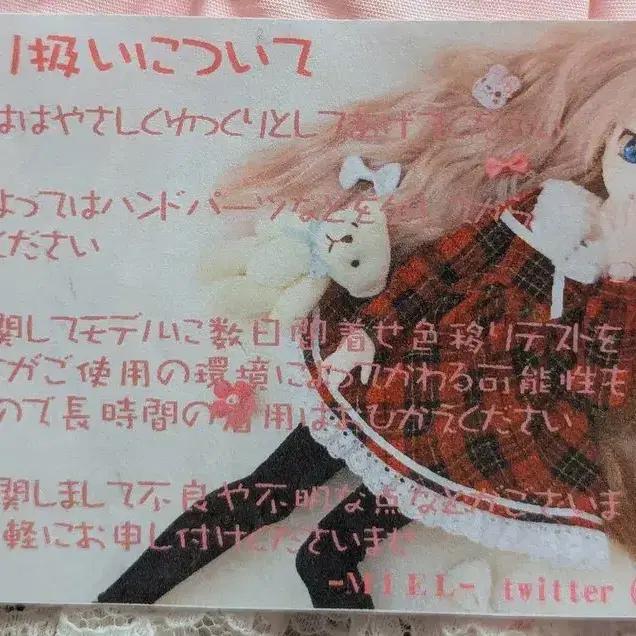 扱いについて
はやさしくゆっくりとしてあげてください
よってはハンドパーツなどを
ください
関してモデルに数日間着せ色移りテストを
がご使用の環境によってかわる可能性も
ので長時間の着用はおひかえください
関しまして不良や不明な点などがございま
軽にお申し付けくださいませ
-MIEL- twitter